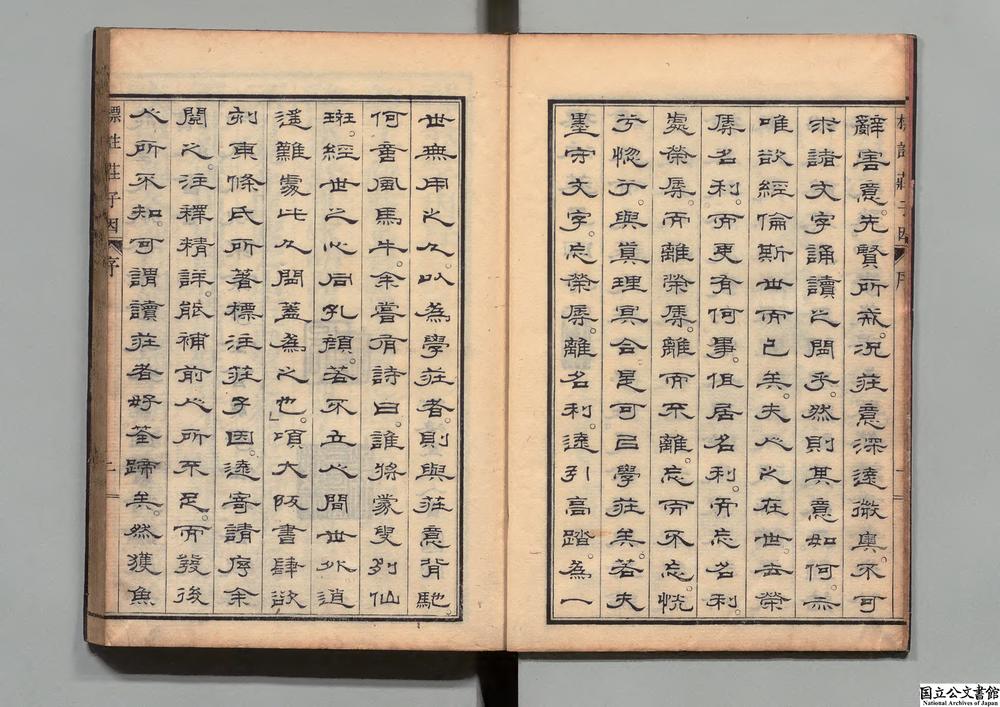 標註莊子因 序 一
辭害意。先賢所戒。況莊意深遠微奧。不可
求諸文字誦讀之間乎。然則其意如何。亦
唯欲經倫斯世而已矣。夫人之在世。去榮
辱名利。而更有何事。但居名利。而忘名利。
處榮辱。而離榮辱。離而不離。忘而不忘。恍
兮惚兮。與眞理冥合。是可曰學莊矣。若夫
墨守文字。忘榮辱。離名利。遠引高踏。為一
世無用之人。以為學莊者。則與莊意背馳
何啻風馬牛。余嘗有詩曰。誰將蒙叟列仙
班。經世之心同孔顏。若不立人間世外逍
遙難處此人間蓋為之也。」項大阪書肆欲
刻東條氏所著標注莊子因。遠寄請序余
閱之。注釋精詳。能補前人所不足。而發後
人所不知。可謂讀莊者好筌蹄矣。然獲魚
標註莊子因 序 二
国立公文書館
National Archives of Japan